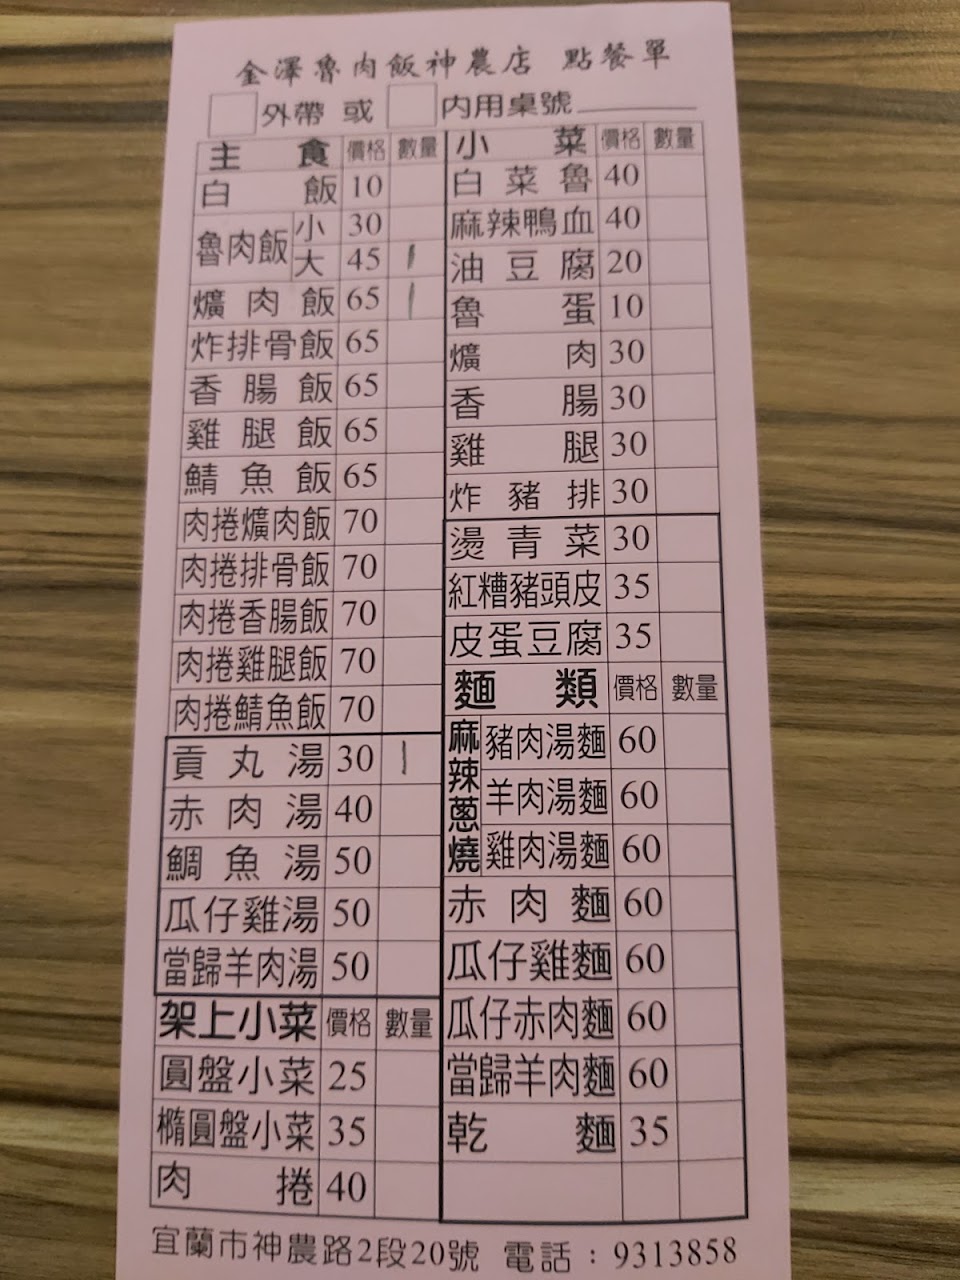 金澤魯肉飯神農店 點餐單
外帶 或 內用桌號
主食 價格 數量
白飯 10
魯肉飯 小 30
大 45 |
爌肉飯 65 |
炸排骨飯 65
香腸飯 65
雞腿飯 65
鯖魚飯 65
肉捲爌肉飯 70
肉捲排骨飯 70
肉捲香腸飯 70
肉捲雞腿飯 70
肉捲鯖魚飯 70
貢丸湯 30 |
赤肉湯 40
鯛魚湯 50
瓜仔雞湯 50
當歸羊肉湯 50
架上小菜 價格 數量
圓盤小菜 25
橢圓盤小菜 35
肉捲 40
小菜 價格 數量
白菜魯 40
麻辣鴨血 40
油豆腐 20
魯蛋 10
爌肉 30
香腸 30
雞腿 30
炸豬排 30
燙青菜 30
紅糟豬頭皮 35
皮蛋豆腐 35
麵類 價格 數量
麻辣蔥燒
豬肉湯麵 60
羊肉湯麵 60
雞肉湯麵 60
赤肉麵 60
瓜仔雞麵 60
瓜仔赤肉麵 60
當歸羊肉麵 60
乾麵 35
宜蘭市神農路2段20號 電話：9313858